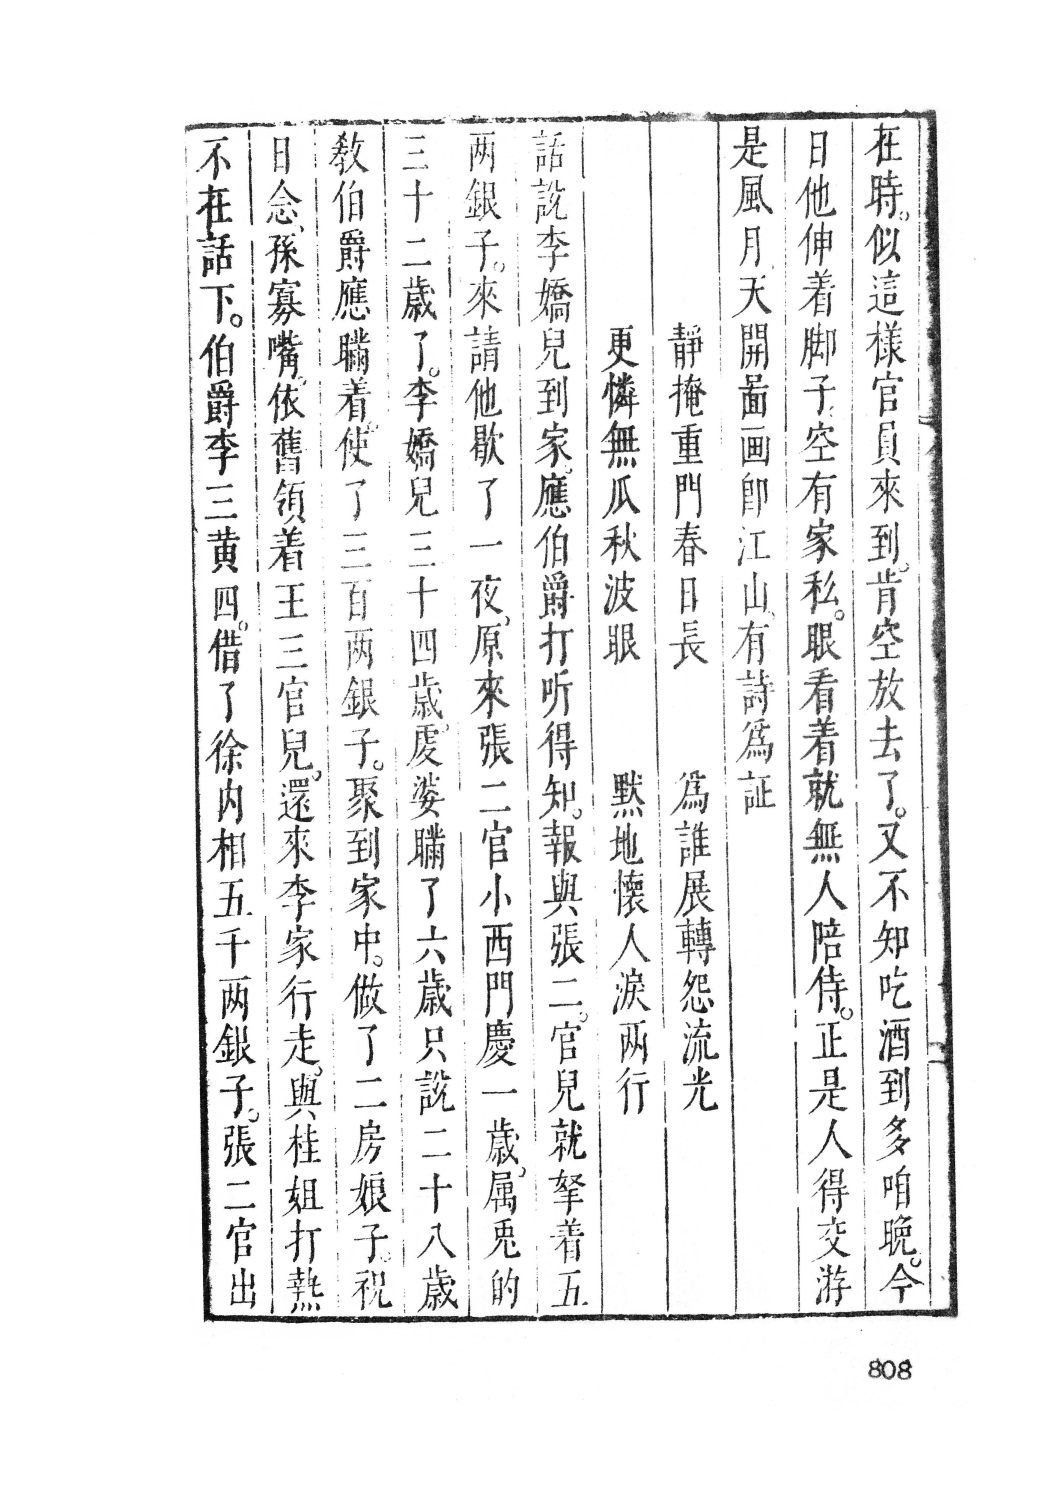 在時。似這樣官員來到。肯空放去了。又不知吃酒到多咱晚。今
日他伸着脚子。空有家私。眼看着就無人陪侍。正是人得交游
是風月。天開啚画即江山。有詩爲証
靜掩重門春日長　爲誰展轉怨流光
更憐無瓜秋波眼　默地懷人淚兩行
話説李嬌兒到家。應伯爵打听得知。報與張二官兒就拏着五
两銀子。來請他歇了一夜。原來張二官小西門慶一歲。属兎的
三十二歲了。李嬌兒三十四歲。虔婆瞞了六歲只説二十八歲
教伯爵應瞞着。使了三百两銀子。聚到家中。做了二房娘子。祝
日念。孫寡嘴。依舊領着王三官兒。還來李家行走。與桂姐打熱
不在話下。伯爵李三黄四。借了徐内相五千两銀子。張二官出
808